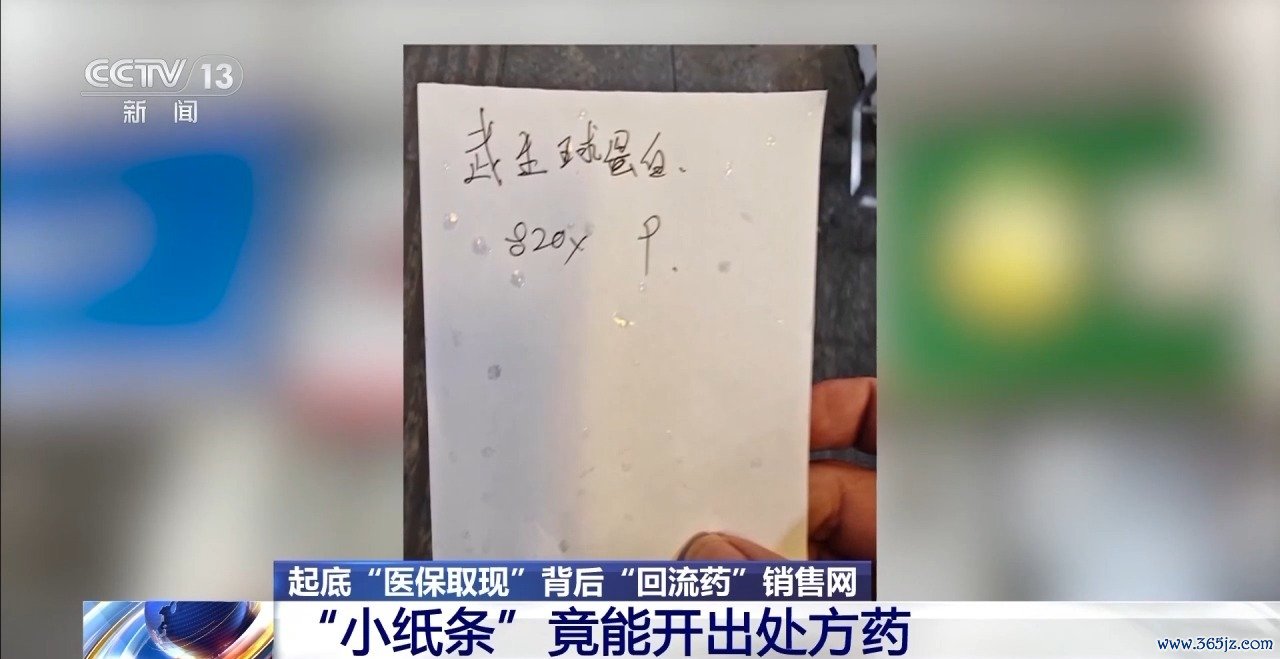 CCTV 13
新闻
武生球蛋白.
820x 9.
起底“医保取现”背后“回流药”销售网
“小纸条”竟能开出处方药
www.365jz.com